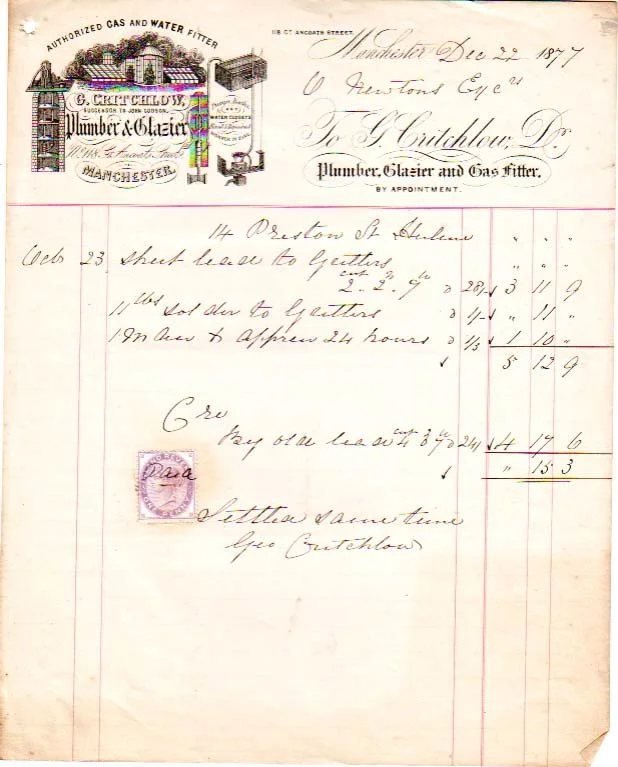 AUTHORIZED GAS AND WATER FITTER
G. CRITCHLOW,
SUCCESSOR TO JOHN DODSON,
Plumber & Glazier
MANCHESTER.
WATER CLOSETS
118 GT ANCOATS STREET.
Manchester Dec 22 1877
Newtons Eqrs
To G. Critchlow, Dr
Plumber, Glazier and Gas Fitter.
BY APPOINTMENT.
14 Preston St Hulme " " "
Oct 23 sheet lead to Gutters " " "
cwt qr lb
2 . 2 . 7 @ 28/- 3 11 9
11 lbs solder to Gutters @ 1/- " 11 "
1 Man & Appren 24 hours @ 1/3 1 10 "
5 12 9
Cre
By old lead cwt 4 0 7 @ 24/ 4 17 6
" 15 3
Paid
Settled same time
Geo Critchlow